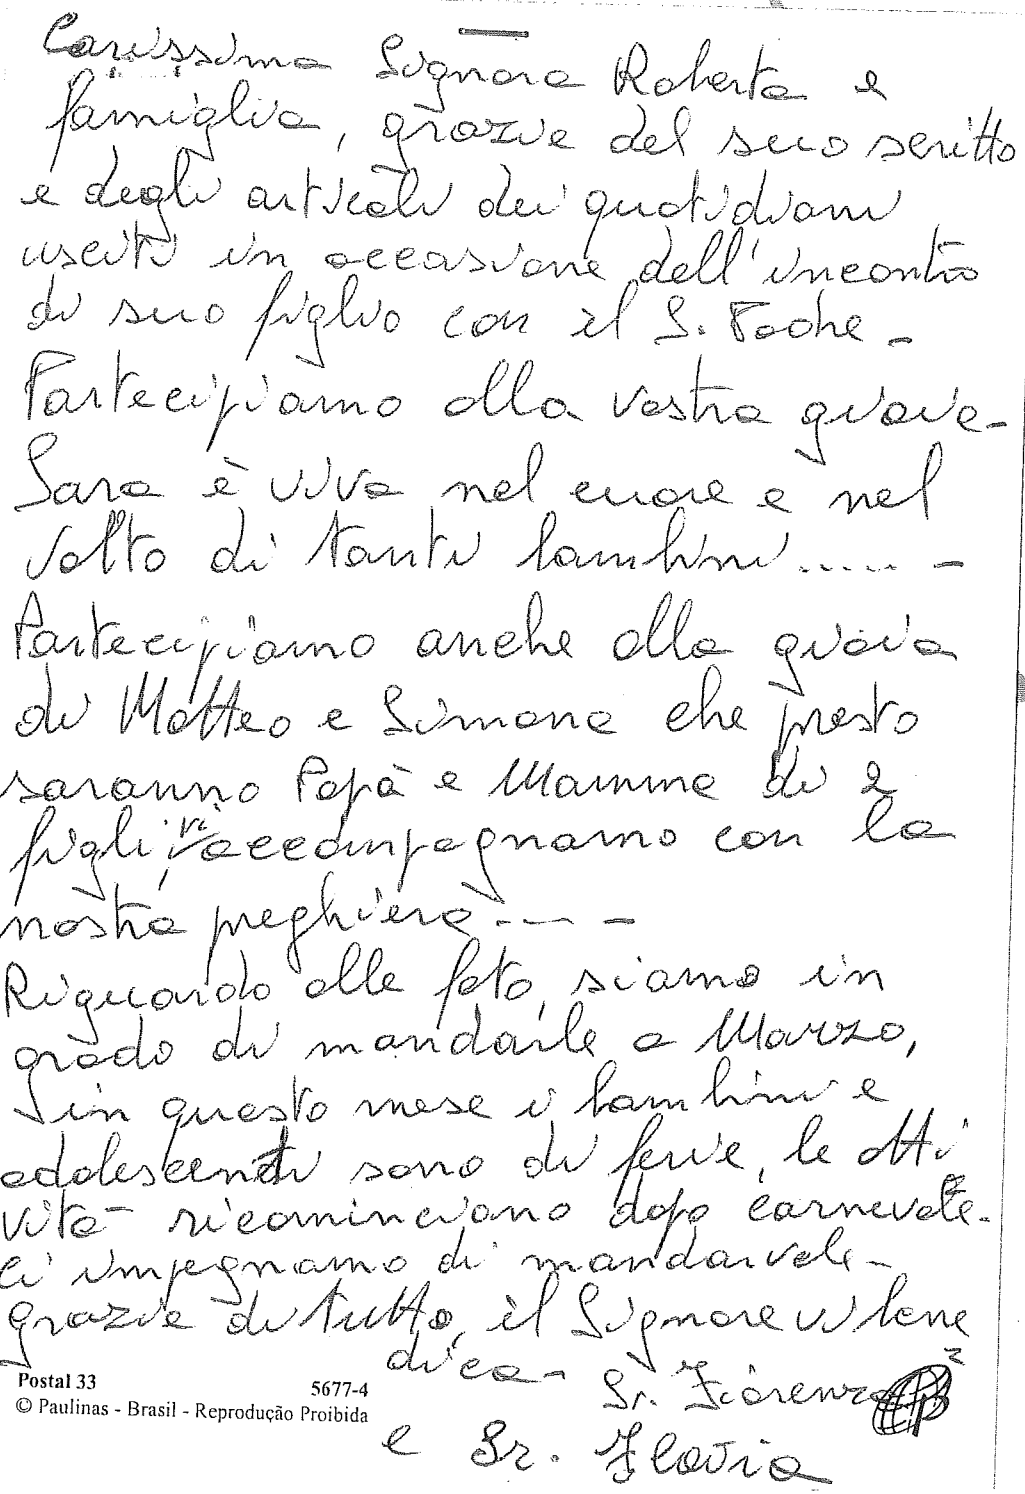 Carissima Signora Roberta e
famiglia, grazie del suo scritto
e degli articoli dei quotidiani
usciti in occasione dell'incontro
di suo figlio con il S. Padre -
Partecipiamo alla vostra gioia -
Sara è viva nel cuore e nel
volto di tanti bambini ..... -
Partecipiamo anche alla gioia
di Matteo e Simona che presto
saranno Papà e Mamma di 2
figli, vi accompagnamo con la
nostra preghiera --- -
Riguardo alle foto, siamo in
grado di mandarle a Marzo,
in questo mese i bambini e
adolescenti sono di ferie, le atti
vità ricominciano dopo carnevale.
Ci impegnamo di mandarvele -
grazie di tutto, il Signore vi bene
dica -
Sr. Fiorenza
e Sr. Flavia
Postal 33
5677-4
© Paulinas - Brasil - Reprodução Proibida